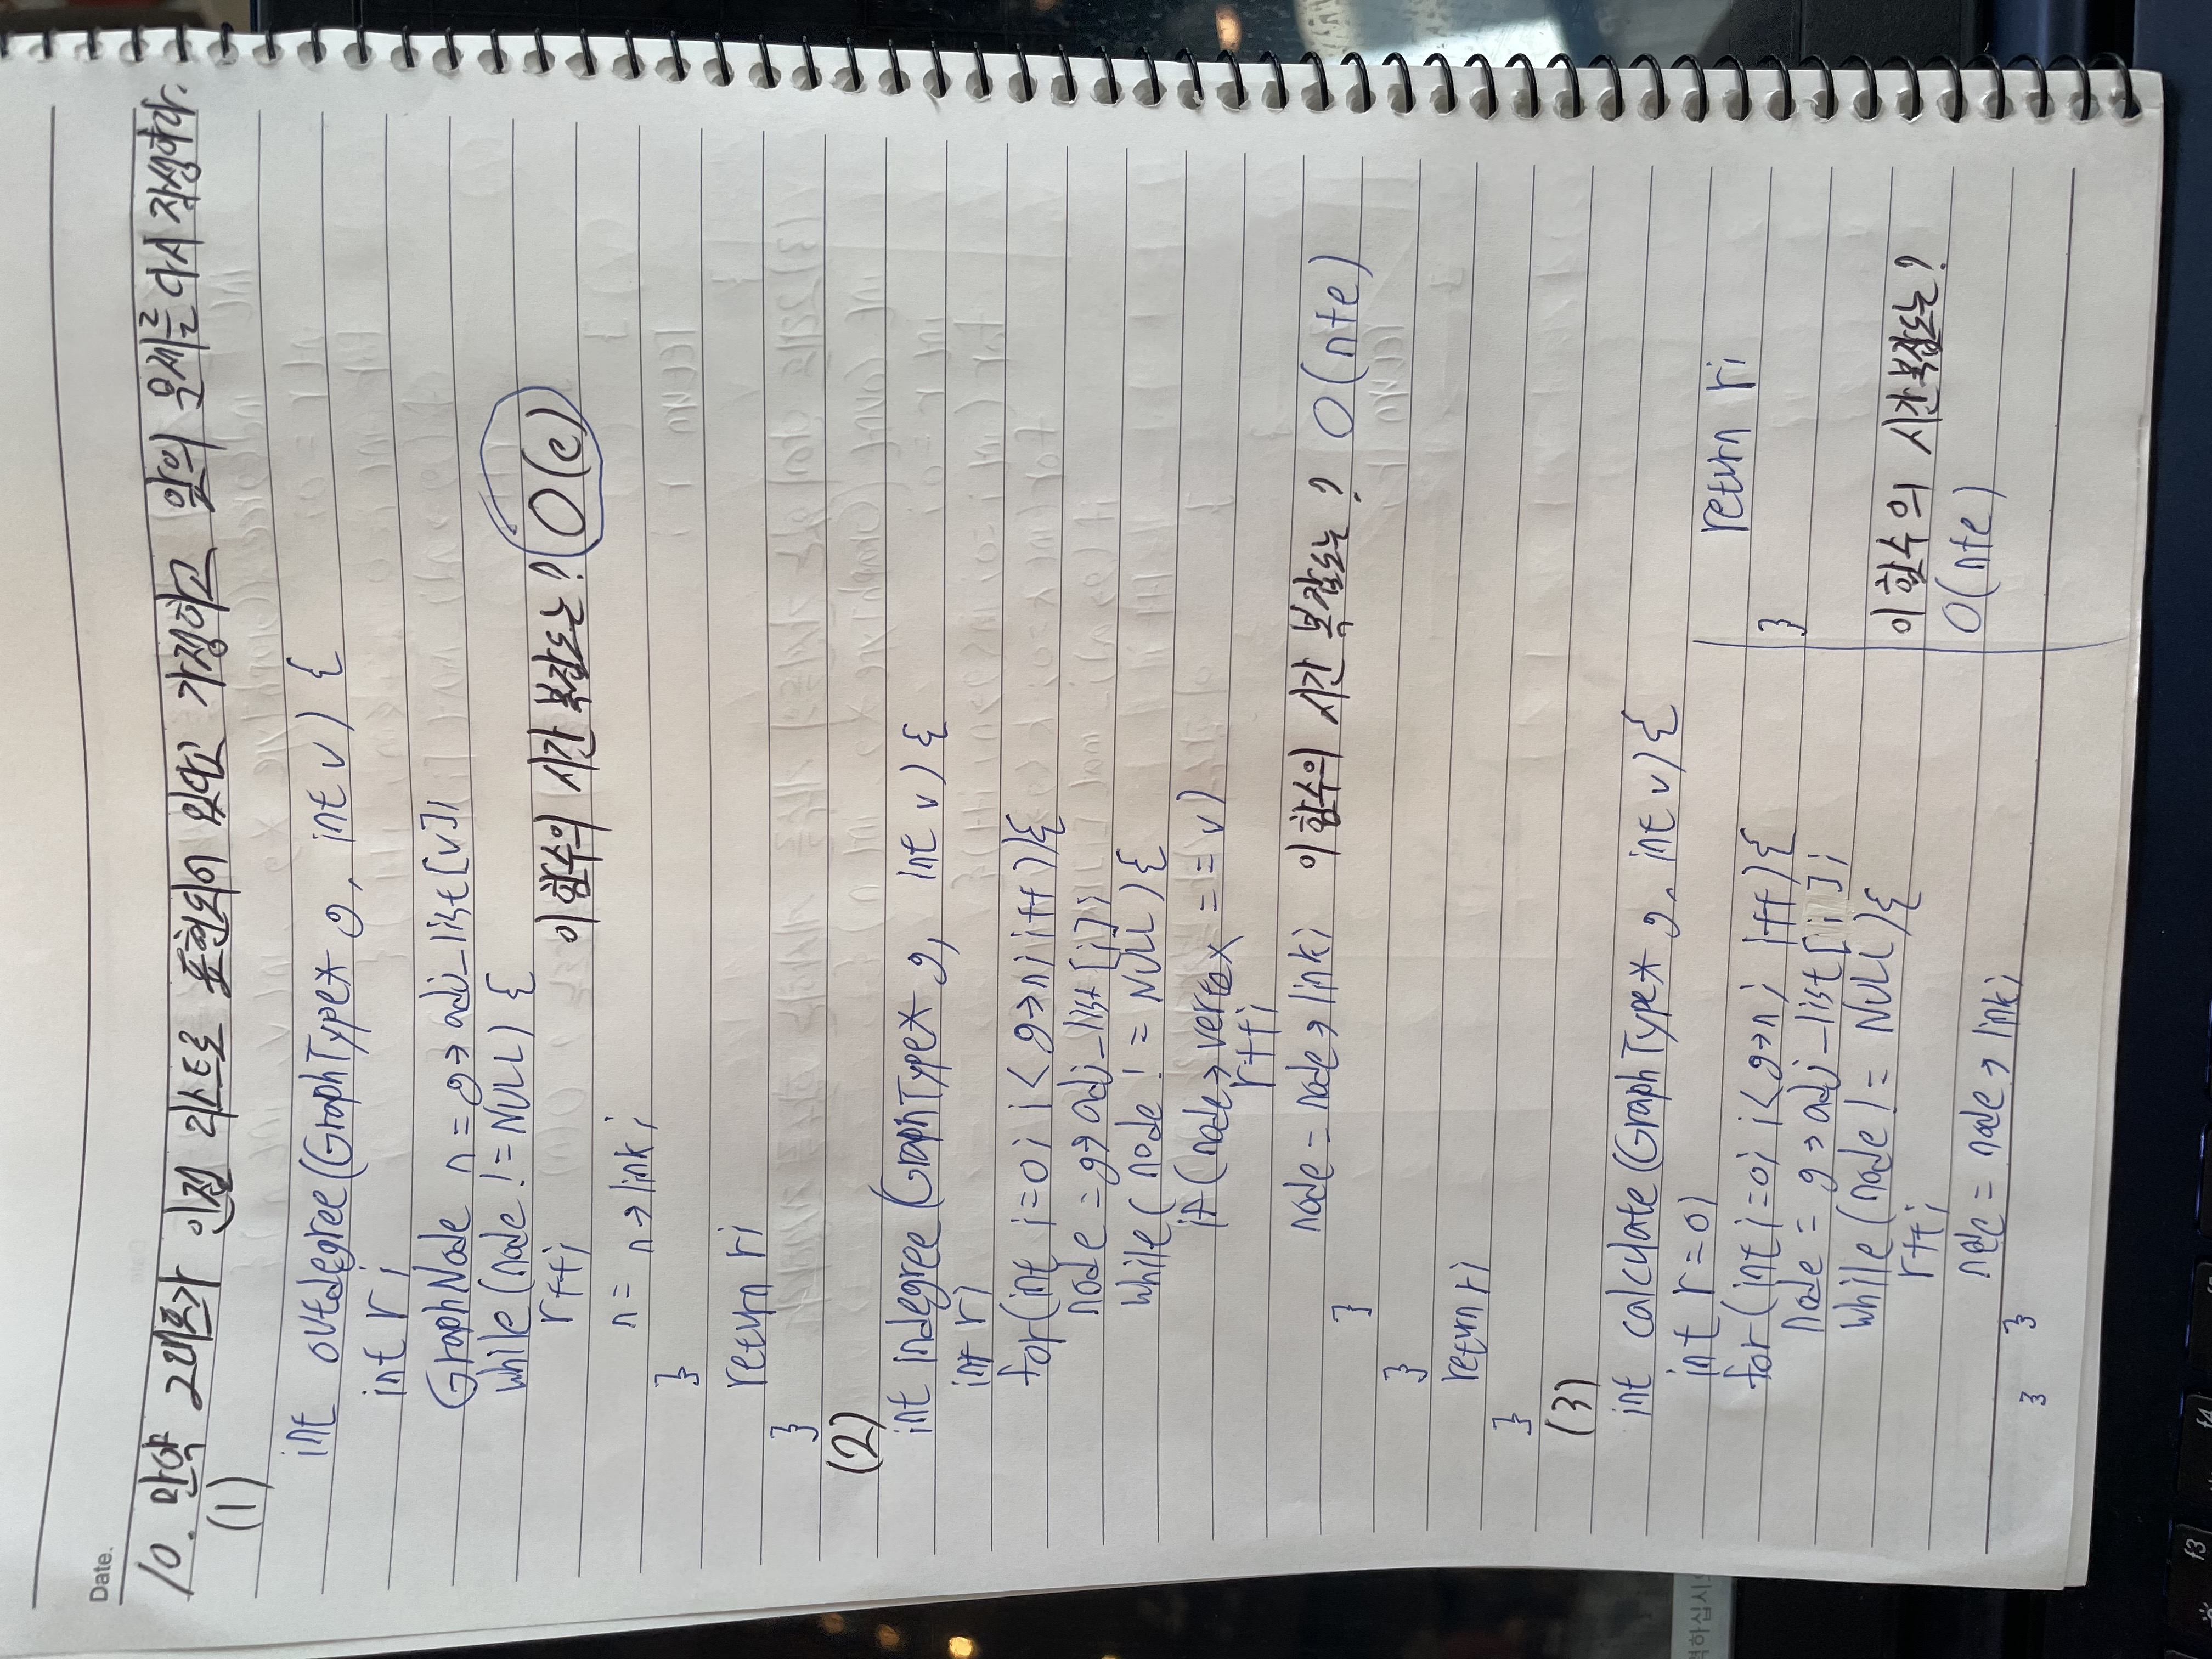 Date.
10. 만약 그래프가 인접 리스트로 표현되어 있다고 가정하고 앞의 문제를 다시 작성하라.
(1)
int outdegree(GraphType* g, int v) {
int r;
GraphNode n = g→adj_list[v];
while (node != NULL) {
r++;
이 함수의 시간 복잡도는? O(e)
n = n→link;
}
return r;
}
(2)
int indegree (GraphType* g, int v) {
int r;
for(int i=0; i < g→n; i++){
node = g→adj_list[i];
while( node != NULL){
if(node→vertex == v)
r++;
node = node→link; 이 함수의 시간 복잡도는? O(n+e)
}
}
return r;
}
(3)
int calculate (GraphType* g, int v){
int r=0;
for(int i=0; i<g→n; i++){
node = g→adj_list[i];
while (node != NULL){
r++;
node = node→link;
}
}
return r;
}
이 함수의 시간복잡도는?
O(n+e)
f3
f4